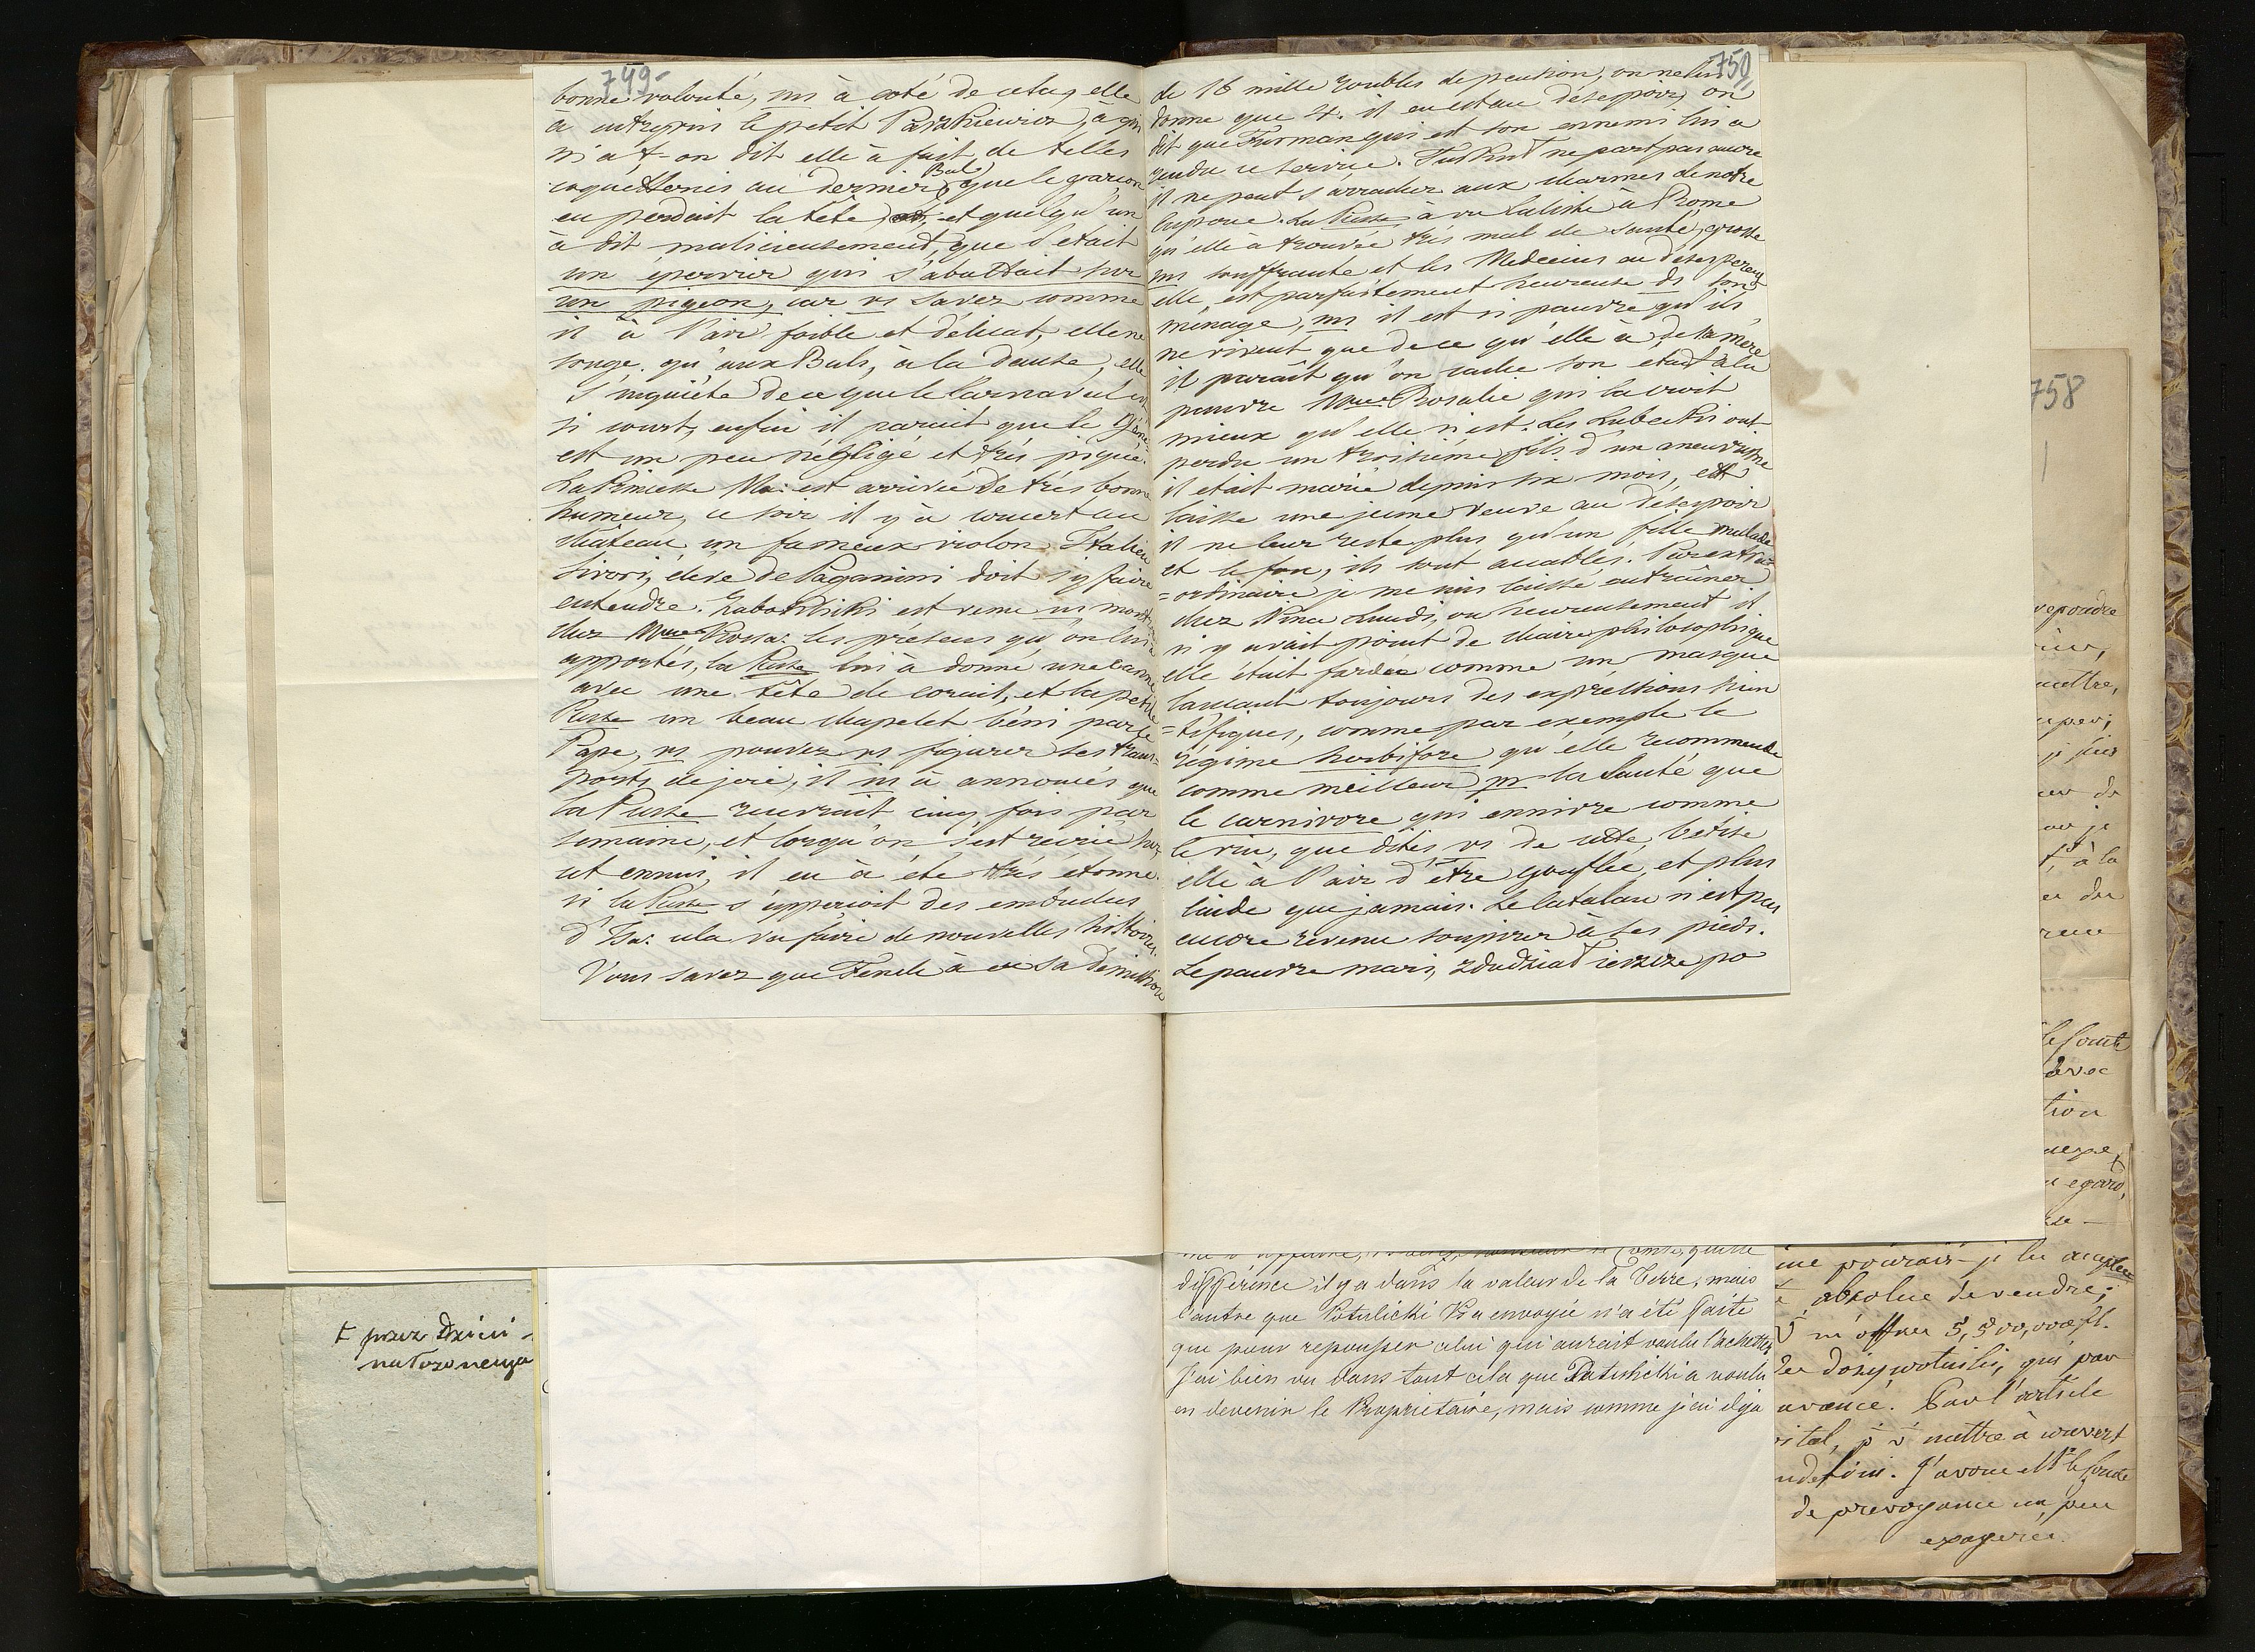 749-
bonne volonté, ms à coté de cela, elle
à entrepris le petit Paszkiewicz, à qui
m'a t-on dit elle à fait de telles
coquetteries au dernier Bal, que le garçon
en perdait la tête, et quelqu'un
à dit malicieusement, que c'était
un épervier qui s'abattait sur
un pigeon, car vs savez comme
il à l'air foible et délicat, elle ne
songe qu'aux Bals, à la danse, elle
s'inquiète de ce que le Carnaval est
si court, enfin il parait que le
est un peu négligé et très piqué.
La Princesse Ma: est arrivée de très bonne
humeur, ce soir il y à concert au
château, un fameux violon Italien
Sivori, eleve de Paganini doit s'y faire
entendre. est venu ns montrer
chez Mme Rosa: les présens qu'on lui a
apportés, la Pusse lui à donné une canne
avec une tête de corail, et la petite
Pusse un beau chapelet béni par le
Pape, vs pouvez vs figurer ses trans-
ports de joie, il ns à annoncés que
la Pusse recevrait cinq fois par
semaine, et lorsqu'on s'est récrié sur
cet ennui, il en à été très étonné.
si la Pusse s'apperçoit des embuches
d'Isa: cela va faire de nouvelles histoires.
Vous savez que à eu sa demission
750
de 16 mille roubles de pension, on ne lui
donne que 4. il en est au désespoir, on
dit que Furman qui est son ennemi lui a
rendu ce service. ne part pas encore
il ne peut s'arracher aux charmes de notre
. La Pusse à vu à Rome
qu'elle à trouvée très mal de santé, grosse
ms souffrante et les Medecins en désespèrent
elle est parfaitement heureuse ds son
ménage, ms il est si pauvre qu'ils
ne vivent que de ce qu'elle à de sa mère
il parait qu'on cache son etat à la
pauvre Mme Rosalie qui la croit
mieux qu'elle n'est. Les Lubecki ont
perdu un troisième fils d'un aneurisme
il etait marié depuis six mois, et
laisse une jeune veuve au désespoir
il ne leur reste plus qu'un fille malade
et le fou, ils sont accablés. Par extra-
=ordinaire je me suis laissé entraîner
chez Lundi, ou heureusement il
n'y avait point de chaire philosophique
elle était fardée comme un masque
lançant toujours des expressions scien
=tifiques, comme par exemple le
régime herbifore qu'elle recommende
comme meilleur pr la santé que
le carnivore qui ennivre comme
le vin, que dites vs de cette bêtise
elle à l'air d'être gonflée, et plus
laide que jamais. Le Catalan n'est pas
encore revenu soupirer à ses pieds.
Le pauvre mari, zdudział jeszcze po
758
repondre
mettre,
de
à la
du
le Comte
avec
tion
egard,
différence il y a dans la valeur de la Terre, mais
l'autre que Potulicki V a envoyée n'a été faite
que pour repousser celui qui aurait voulu l'acheter
J'ai bien vu dans tout cela que Potulicki a voulu
en devenir le Propriétaire, mais comme j'ai déja
pourais-je lui
absolue de vendre;
m'offrer 5,500,000 fl.
qui par
avancé. Par l'article
mettre à couvert
J'avoue Mr le Comte
de prevoyance un peu
exagerée.
przez